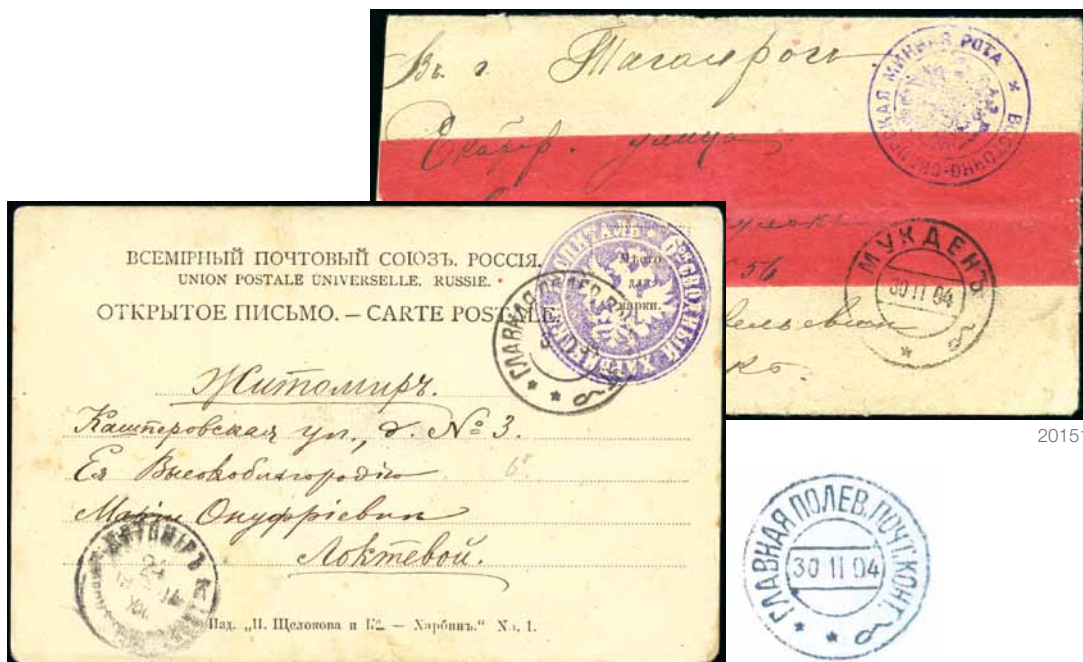 Въ г. Таганрогъ
Екатер. улица
56
ВОСТОЧНО-СИБИРСКАЯ МИННАЯ РОТА
МУКДЕНЪ
30 11 04
ВСЕМІРНЫЙ ПОЧТОВЫЙ СОЮЗЪ. РОССІЯ.
UNION POSTALE UNIVERSELLE. RUSSIE.
ОТКРЫТОЕ ПИСЬМО. – CARTE POSTALE.
Мѣсто
для
марки.
Житомиръ.
Каштеровская ул., д. № 3.
Ея Высокоблагородію
Маріи Онуфріевнѣ
Локтевой.
ЖИТОМІРЪ
Изд. „И. Щелокова и К° — Харбинъ.“ № 1.
2015
ГЛАВНАЯ ПОЛЕВ. ПОЧТ. КОНТ.
30 11 04